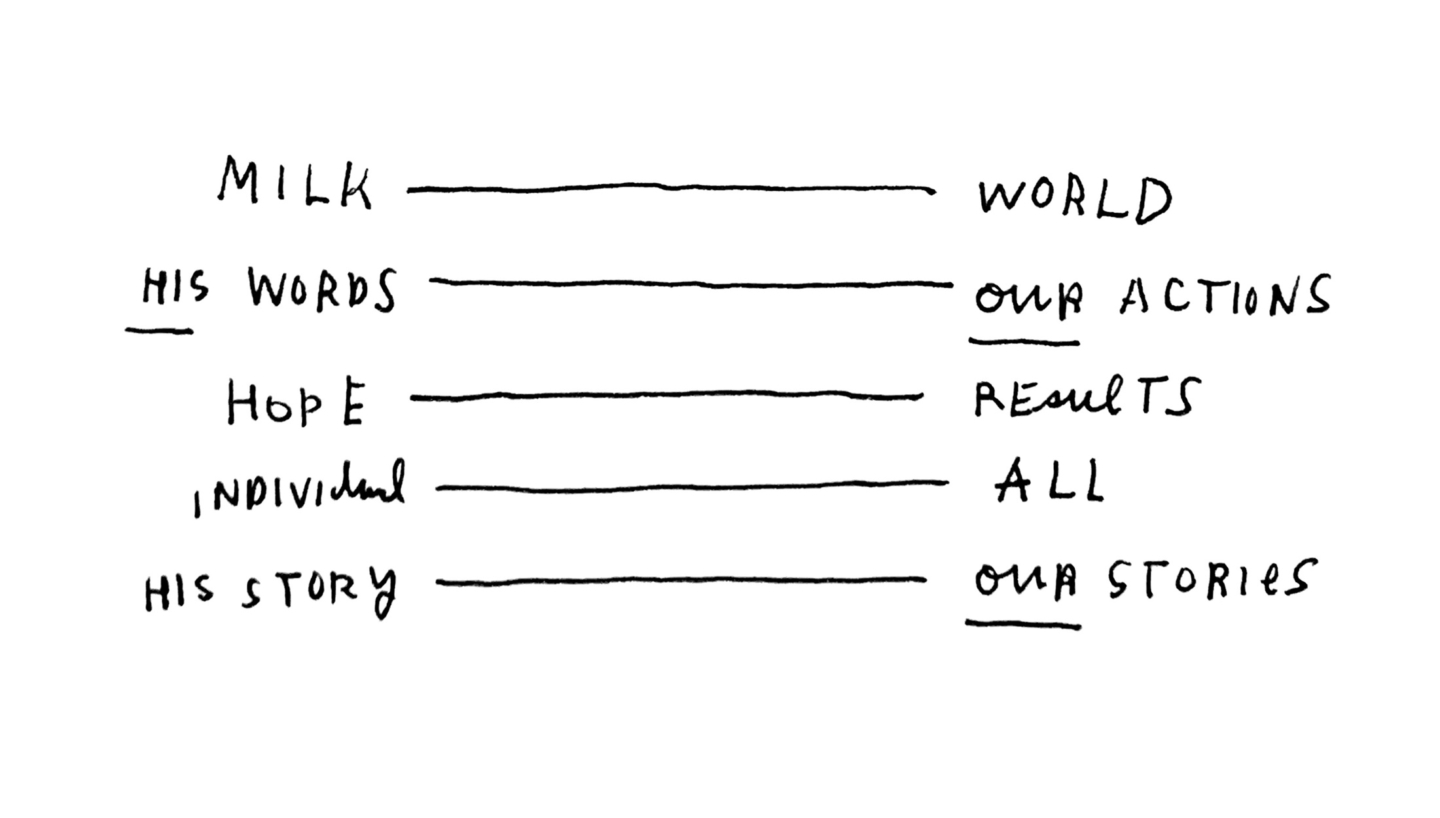 MILK WORLD
HIS WORDS OUR ACTIONS
HOPE RESULTS
INDIVIDUAL ALL
HIS STORY OUR STORIES